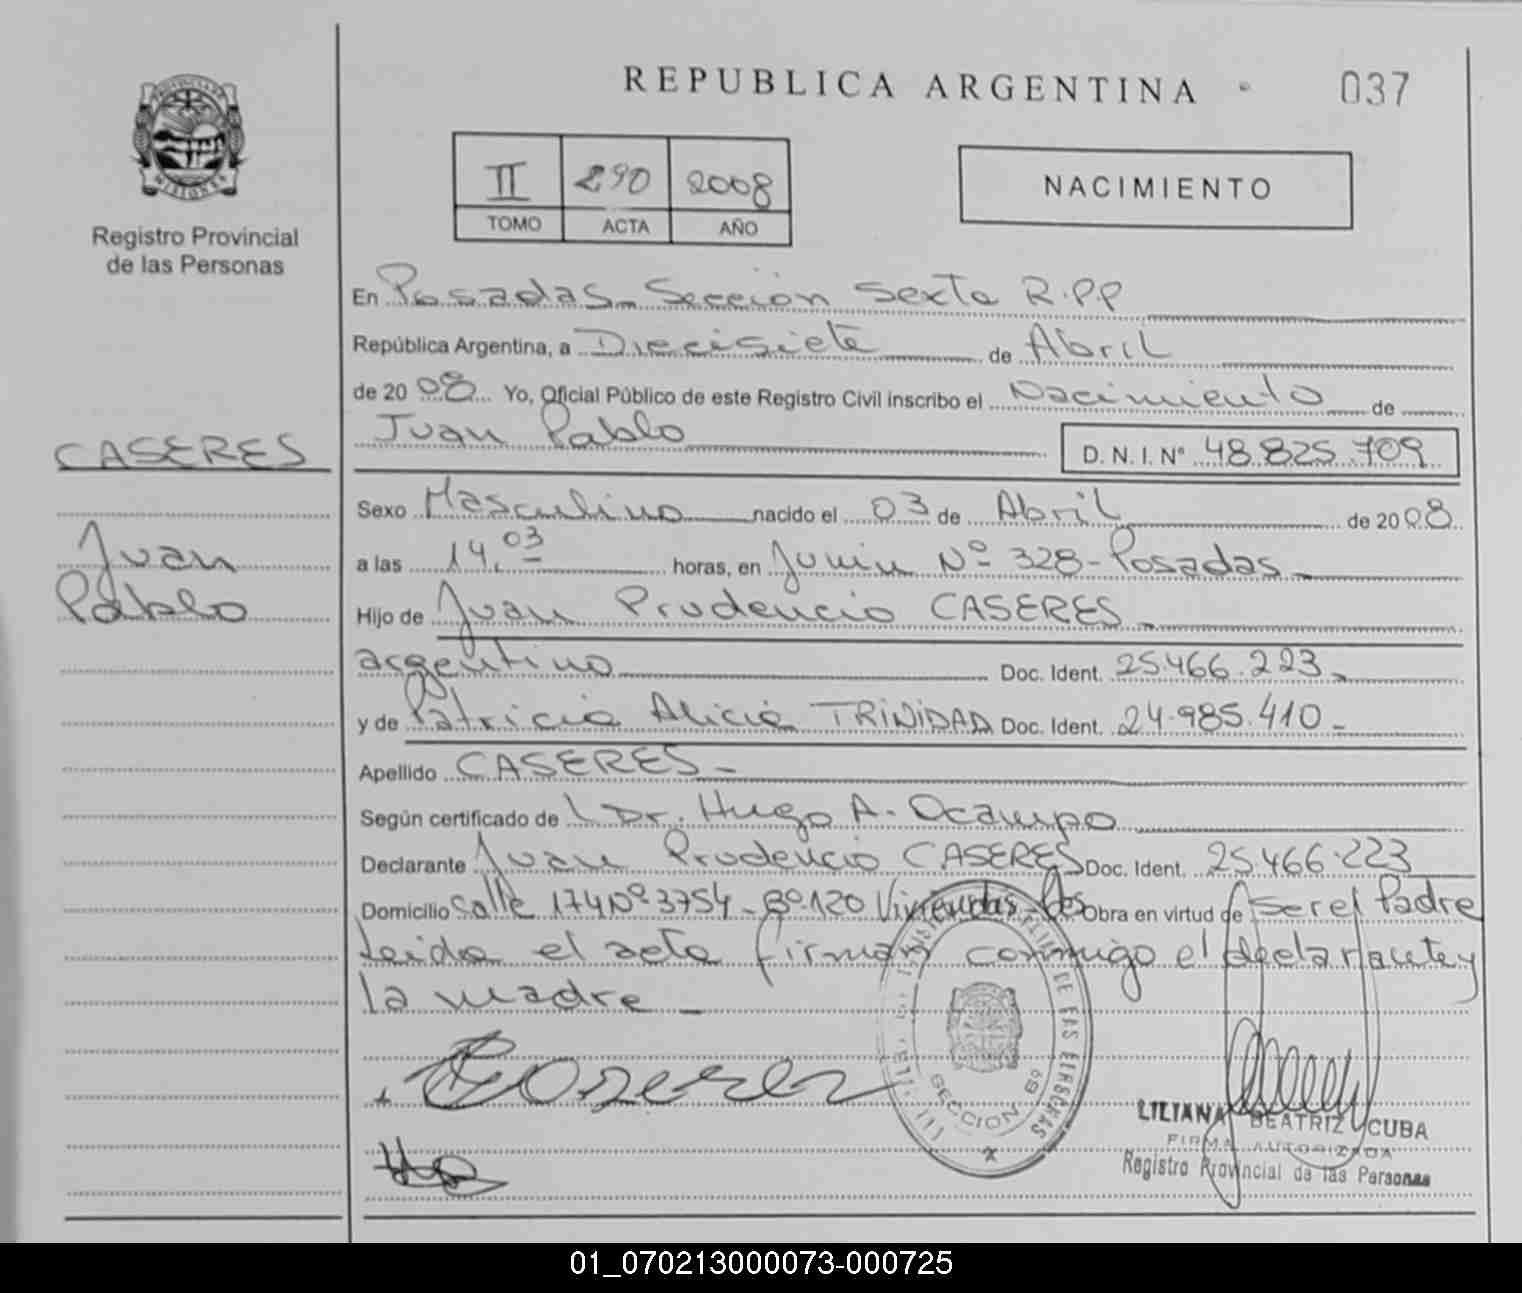 REPUBLICA ARGENTINA
037
MISIONES
Registro Provincial
de las Personas
II 290 2008
TOMO ACTA AÑO
NACIMIENTO
En Posadas Sección Sexta R.P.P
República Argentina, a Diecisiete de Abril
de 2008 Yo, Oficial Público de este Registro Civil inscribo el Nacimiento de
Juan Pablo
D.N.I. N° 48.825.709
CASERES
Juan
Pablo
Sexo Masculino nacido el 03 de Abril de 2008
a las 14,03 horas, en Junin Nº 328-Posadas
Hijo de Juan Prudencio CASERES
argentino Doc. Ident. 25.466.223
y de Patricia Alicia TRINIDAD Doc. Ident. 24.985.410
Apellido CASERES
Según certificado de Dr. Hugo A. Ocampo
Declarante Juan Prudencio CASERES Doc. Ident. 25.466.223
Domicilio Calle 174 Nº 3754 - Bº 120 Viviendas - Pos Obra en virtud de ser el Padre
leida el acta firman conmigo el declarante y
la madre
SECCION 6º
DE LAS PERSONAS
LILIANA BEATRIZ CUBA
FIRMA AUTORIZADA
Registro Provincial de las Personas
01_070213000073-000725